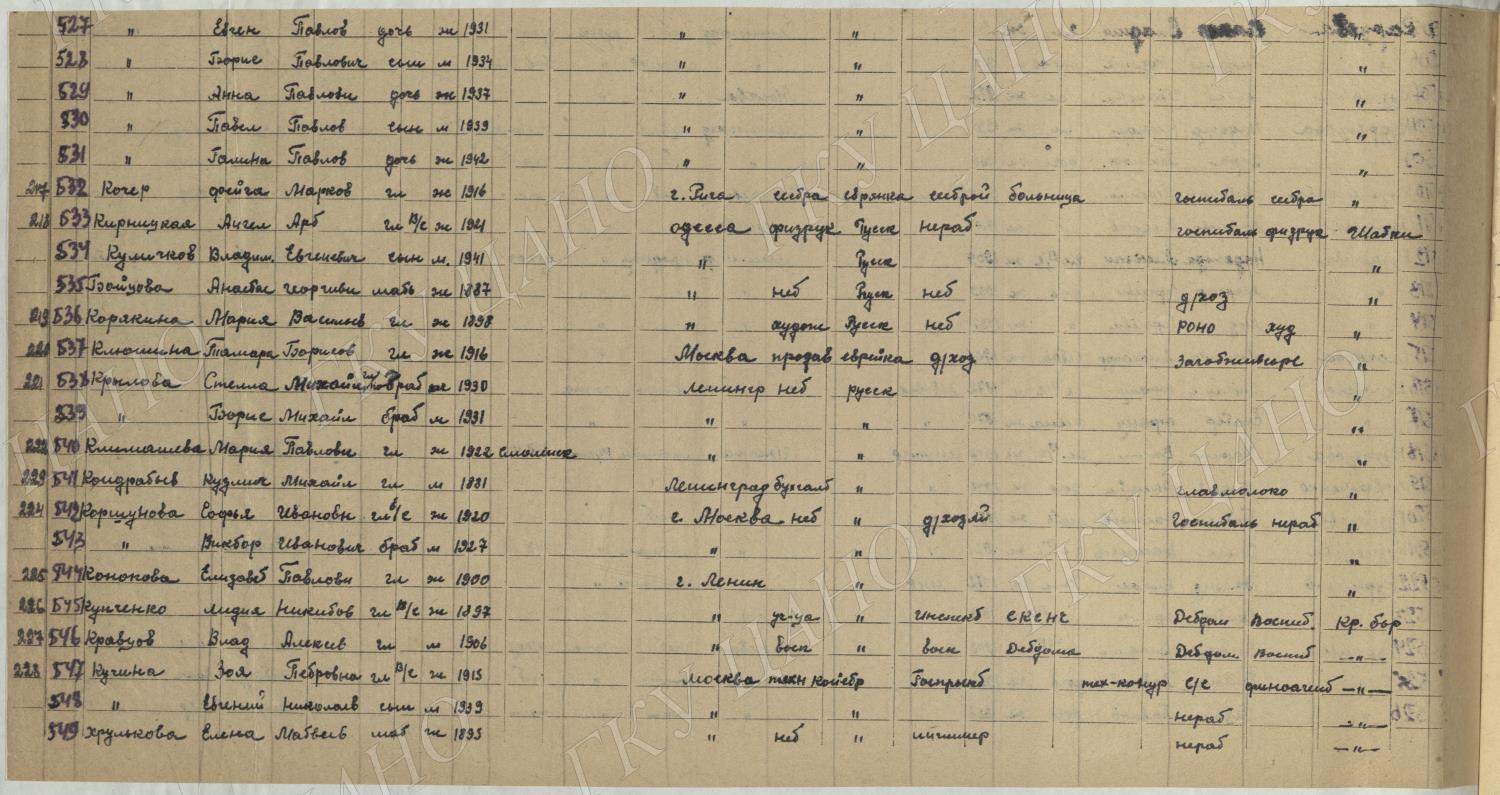 527 " Евген Павлов дочь ж 1931 " " "
528 " Борис Павлович сын м 1934 " " "
529 " Анна Павловн дочь ж 1937 " " "
530 " Павел Павлов сын м 1939 " " "
531 " Галина Павлов дочь ж 1942 " " "
217 532 Кочер Фейга Марков гл ж 1916 г. Рига сестра еврянка сестрой больница госпиталь сестра "
218 533 Кирницкая Ангел Арб гл в/с ж 1921 Одесса физрук Русск нераб. госпиталь физрук Шабки
534 Куличков Владим. Евгениевич сын м. 1941 " Русск "
535 Бойцова Анастас Георгиви мать ж 1887 " неб Русск неб д/хоз "
219 536 Корякина Мария Васильев гл ж 1898 " худож Русск неб РОНО худ "
220 537 Клюшина Тамара Борисов гл ж 1916 Москва продав еврейка д/хоз "
221 538 Крылова Стелла Михайл ж 1930 Ленингр неб русск "
539 " Борис Михайл брат м 1931 " " "
222 540 Мария Павловн гл ж 1922 Смоленск " " "
223 541 Кондратьев Кузмич Михайл гл м 1881 Ленинград бухгалт " главмолоко "
224 542 Коршунова Софья Ивановн гл в/с ж 1920 г. Москва неб " д/хозяй Госпиталь нераб "
543 " Виктор Иванович брат м 1927 " " "
225 544 Кононова Елизавет Павловн гл ж 1900 г. Ленин " "
226 545 Купченко Лидия Никитов гл в/с ж 1897 " уч-ца " Детдом Воспит. Кр. бор
227 546 Кравцов Влад Алексев гл м 1906 " восп " восп Детдома Детдом Воспит —"—
228 547 Кучина Зоя Петровна гл в/с ж 1915 Москва техн Госпроект тех-конур С/С —"—
548 " Евгений Николаев сын м 1939 " " нераб —"—
549 Хрулькова Елена Матвеев мат ж 1895 " неб " нераб —"—